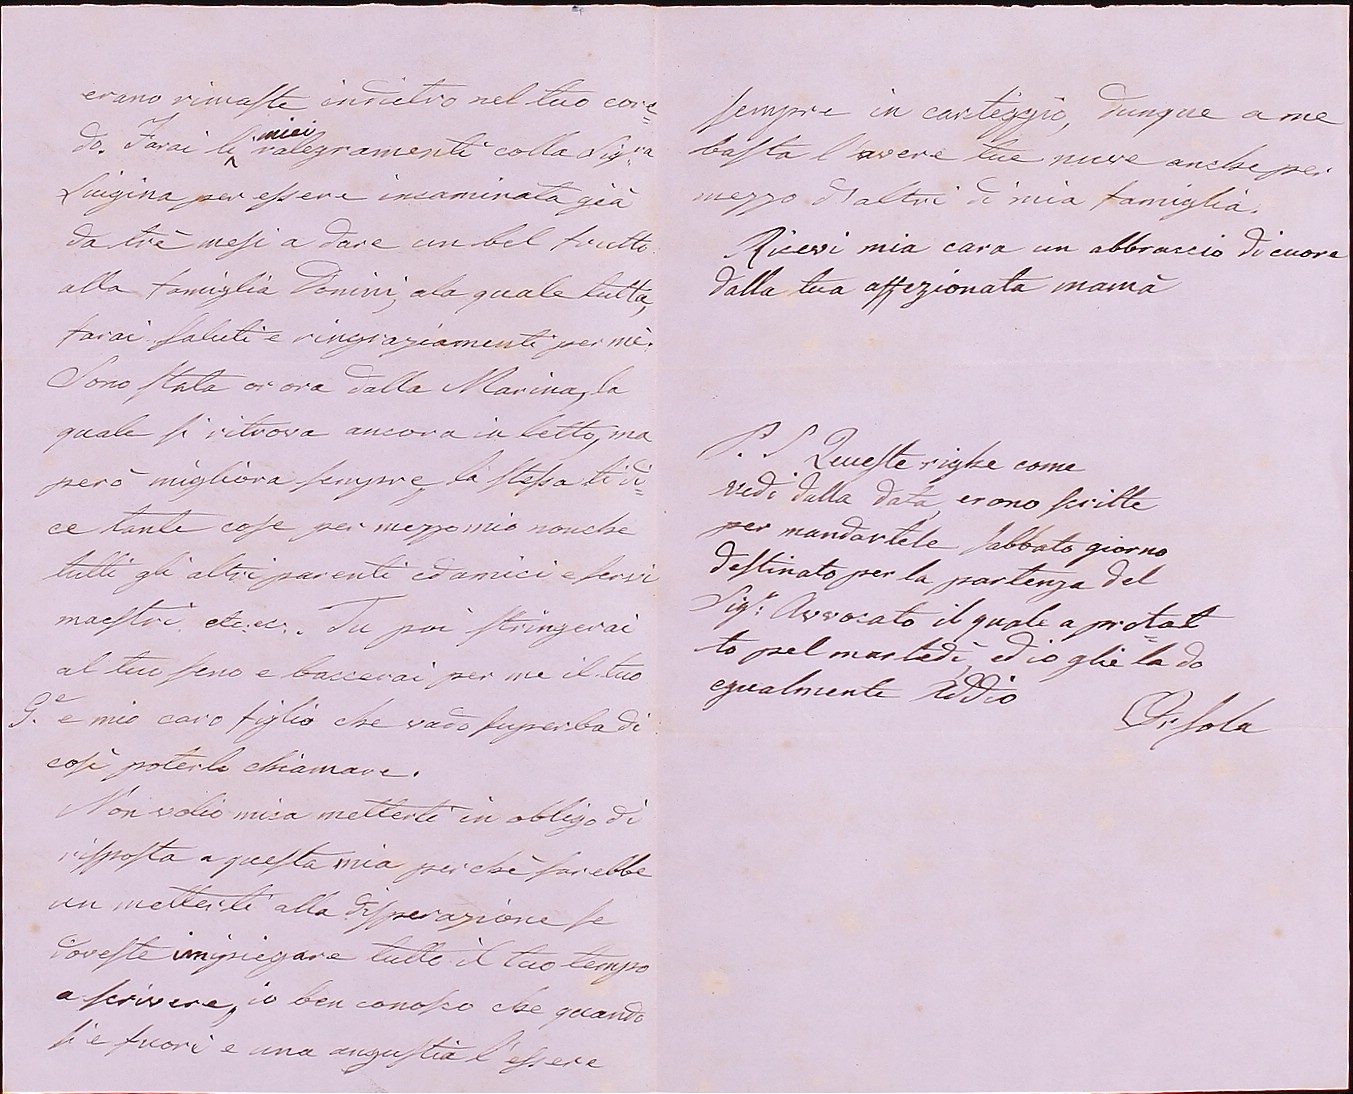 erano rimaste indietro nel tuo core=
do. Farai li miei ralegramenti colla Sig.ra
Luigina per essere incaminata già
da trè mesi a dare un bel frutto
alla famiglia Donini, ala quale tutta,
farai saluti e ringraziamenti per mè.
Sono stata or ora dalla Marina, la
quale si ritrova ancora in letto, ma
però migliora sempre, la stessa ti di=
ce tante cose per mezzo mio nonche
tutti gli altri parenti ed amici e servi
maestri etc. etc. Tu poi stringerai
al tuo seno e baccerai per me il tuo
G.e e mio caro figlio che vado superba di
così poterlo chiamare.
Non volio mica metterti in obligo di
risposta a questa mia perchè sarebbe
un metterti alla disperazione se
doveste impiegare tutto il tuo tempo
a scrivere, io ben conosco che quando
si e fuori e una angustia l'essere
sempre in carteggio, dunque a me
basta l'avere tue nuve anche per
mezzo d'altri di mia famiglia.
Ricevi mia cara un abbraccio di cuore
dalla tua affezionata mamà
P. S. Queste righe come
vedi dalla data, erano scritte
per mandartele sabbato giorno
destinato per la partenza del
Sig.r Avvocato il quale a protat=
to pel martedì, ed io glie la do
egualmente Addio
Orsola